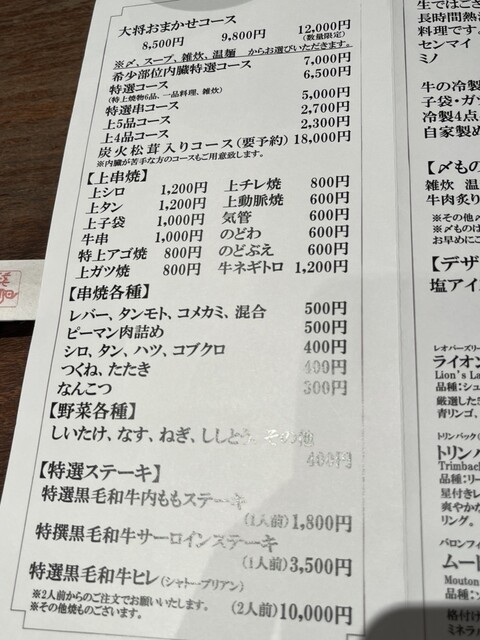 大将おまかせコース
8,500円 9,800円 12,000円
(数量限定)
※〆、スープ、雑炊、温麺 からお選びいただきます。
希少部位内臓特選コース 7,000円
特選コース 6,500円
(特上焼物6品、一品料理、雑炊)
特選串コース 5,000円
上5品コース 2,700円
上4品コース 2,300円
炭火松茸入りコース(要予約) 18,000円
※内臓が苦手な方のコースもご用意致します。
【上串焼】
上シロ 1,200円 上チレ焼 800円
上タン 1,200円 上動脈焼 600円
上子袋 1,000円 気管 600円
牛串 1,000円 のどわ 600円
特上アゴ焼 800円 のどぶえ 600円
上ガツ焼 800円 牛ネギトロ 1,200円
【串焼各種】
レバー、タンモト、コメカミ、混合 500円
ピーマン肉詰め 500円
シロ、タン、ハツ、コブクロ 400円
つくね、たたき 400円
なんこつ 300円
【野菜各種】
しいたけ、なす、ねぎ、ししとう、その他
400円
【特選ステーキ】
特選黒毛和牛内ももステーキ
(1人前) 1,800円
特撰黒毛和牛サーロインステーキ
(1人前) 3,500円
特選黒毛和牛ヒレ(シャトーブリアン)
※2人前からのご注文でお願いいたします。 (2人前) 10,000円
※その他焼ものございます。
生ではござ
長時間熱
料理です。
センマイ
ミノ
牛の冷製
子袋・ガツ
冷製4点
自家製
【〆もの
雑炊 温
牛肉炙り
※その他〆
※〆ものは
お早めに
【デザ
塩アイ
レオパーズリー
ライオン
Lion's La
品種:シュ
厳選した5
青リンゴ、
トリンバック(
トリンバ
Trimbach
品種:リー
星付きレ
爽やかな
リング。
バロンフィ
ムート
Mouton
品種:ソ
格付け
ミネラ